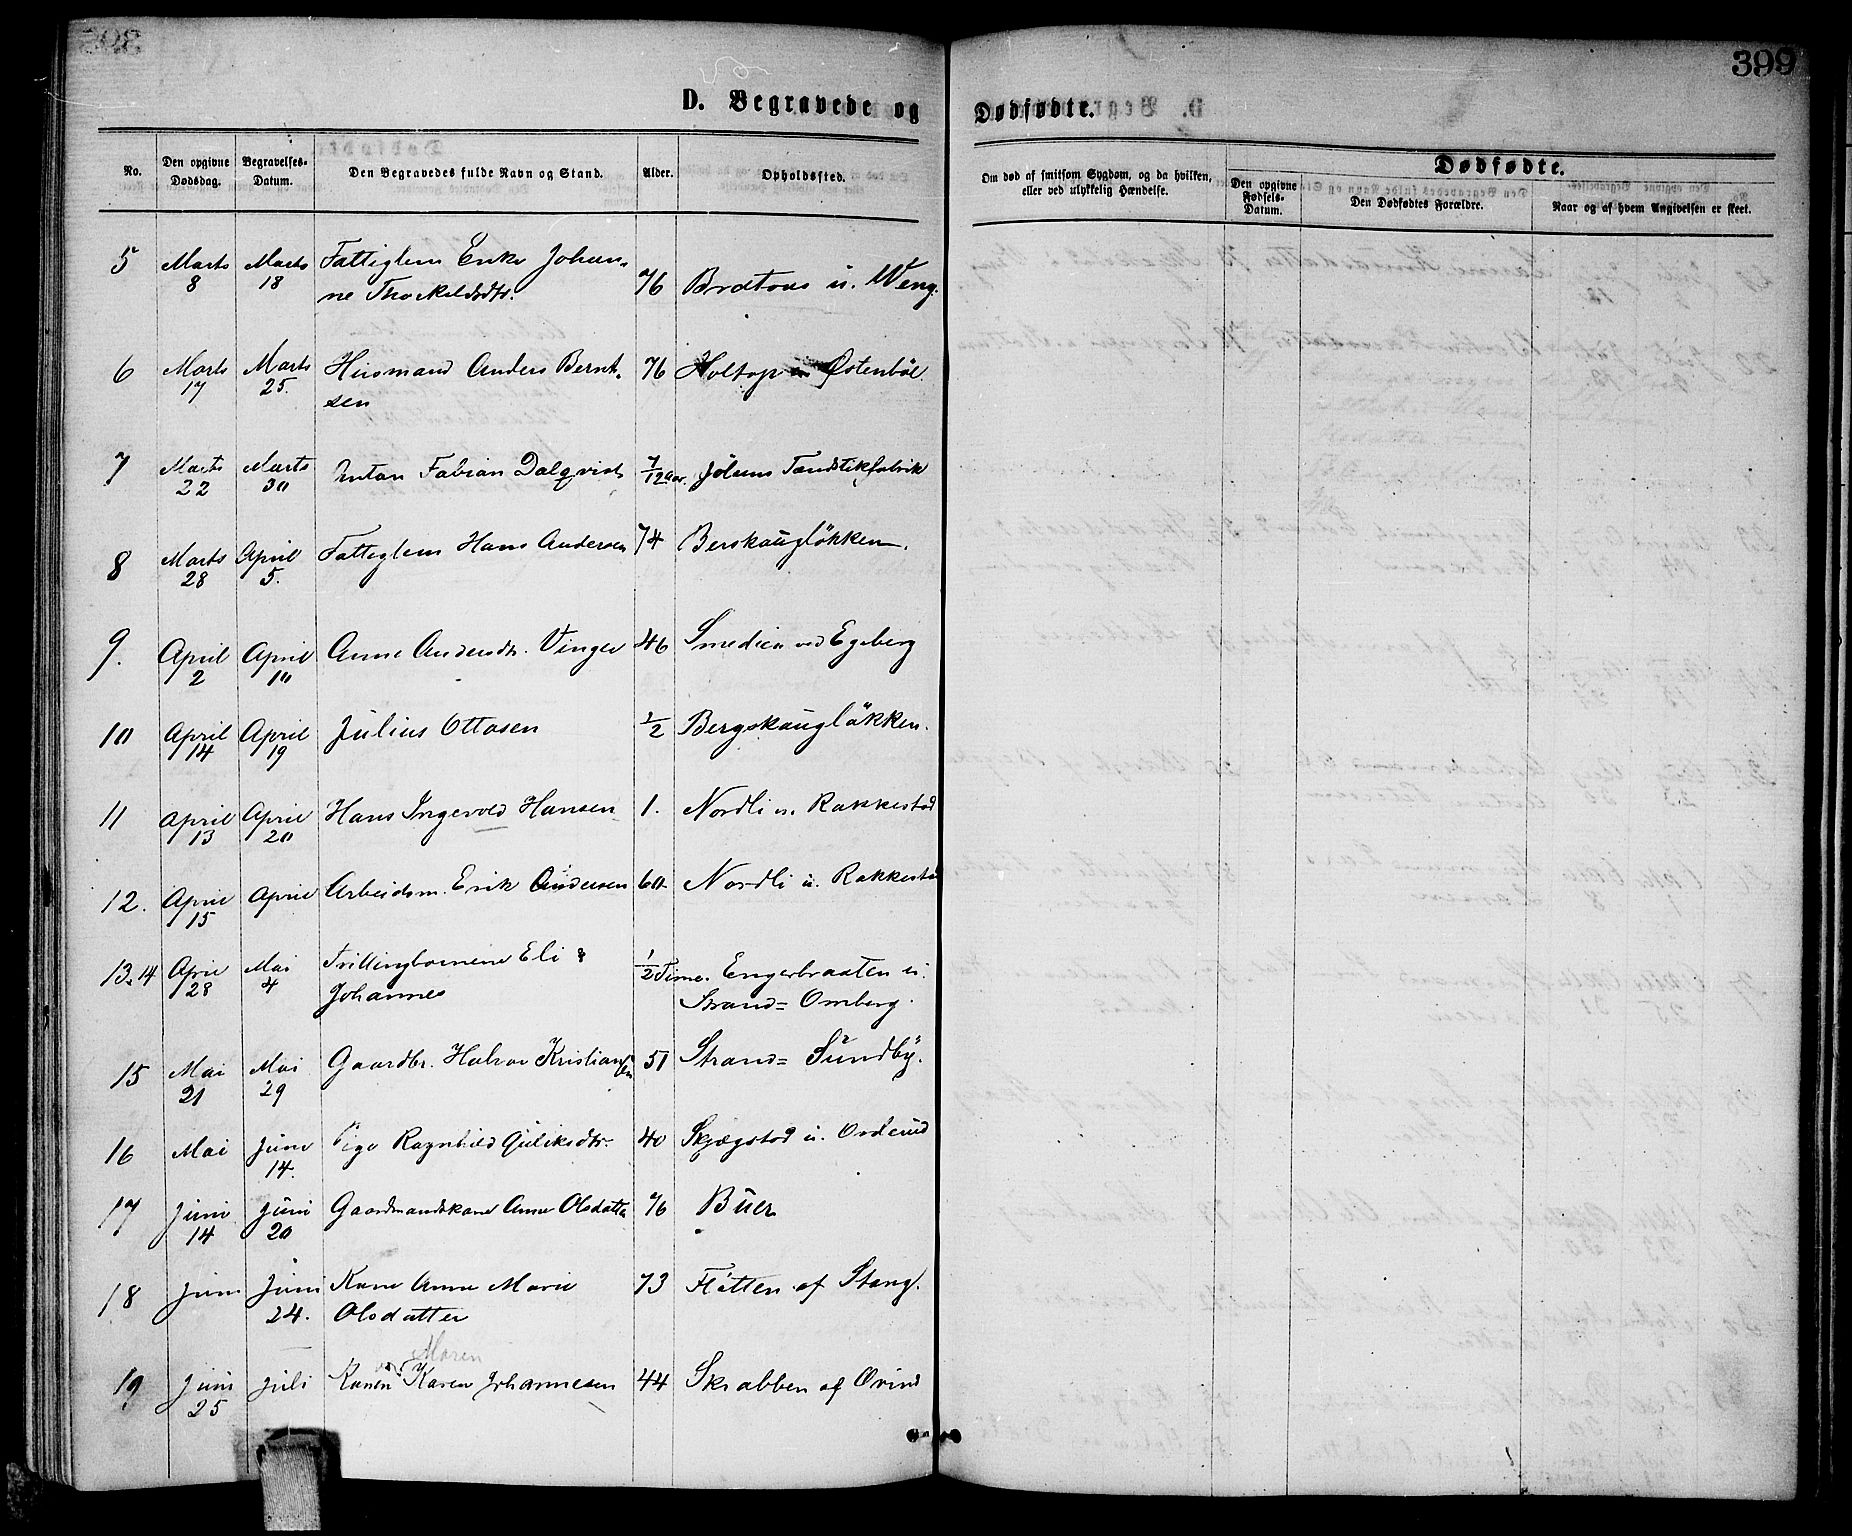 399
D. Begravede og Dødfødte.
No.
Den opgivne Dødsdag.
Begravelses-Datum.
Den Begravedes fulde Navn og Stand.
Alder.
Opholdssted.
Om død af smitsom Sygdom, og da hvilken, eller ved ulykkelig Hændelse.
Dødfødte.
Den opgivne Fødsels-Datum.
Den Dødfødtes Forældre.
Naar og af hvem Angivelsen er skeet.
5 Marts 8 Marts 18 Fattiglem Enke Johan-
ne Thorkeldsdtr. 76 Brataas u. Weng.
6 Marts 17 Marts 25. Husmand Anders Bernt-
sen 76 Holtop Østenböl.
7 Marts 22 Marts 30 Anton Fabian Dalqvist 7/12 aar. Jölsens Tændstikfabrik
8 Marts 28 April 5. Fattiglem Hans Andersen 74 Berskauglökken.
9. April 2 April 10 Anne Andersdtr. Vinger 46 Smedien ved Egeberg
10 April 14 April 19 Julius Ottosen 1/2 Bergskauglökken.
11 April 13 April 20 Hans Ingevold Hansen 1. Nordli u. Rakkestad
12. April 15 April Arbeidsm. Erik Andersen 60 Nordli u. Rakkestad
13.14 April 28 Mai 4 Trillingbörnene Eli &
Johannes 1/2 Time. Engerbraaten u.
Strand= Omberg.
15 Mai 21 Mai 29 Gaardbr. Halvor Kristiansen 51 Strand= Sundby.
16 Mai Juni 14. Pige Ragnhild Guliksdtr. 40 Skjægstad u. Orderud
17 Juni 14 Juni 20 Gaardmandskone Anne Olsdatter 76 Buer
18 Juni Juni 24. Kone Anne Marie
Olsdatter 73 Fløtten af Stang.
Maren
19 Juni 25 Juli Konen Karen Johannesen 44 Skrabben af Ovind